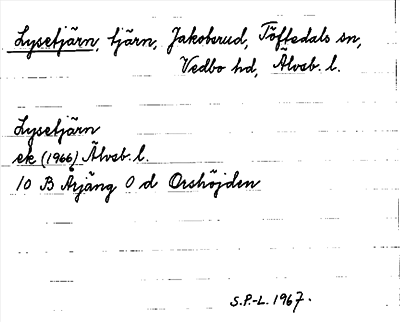 Lysetjärn, tjärn, Jakobsrud, Töftedals sn,
Vedbo hd, Älvsb. l.
Lysetjärn
ek (1966) Älvsb. l.
10 B Årjäng 0 d Orshöjden
S.P.-L. 1967.